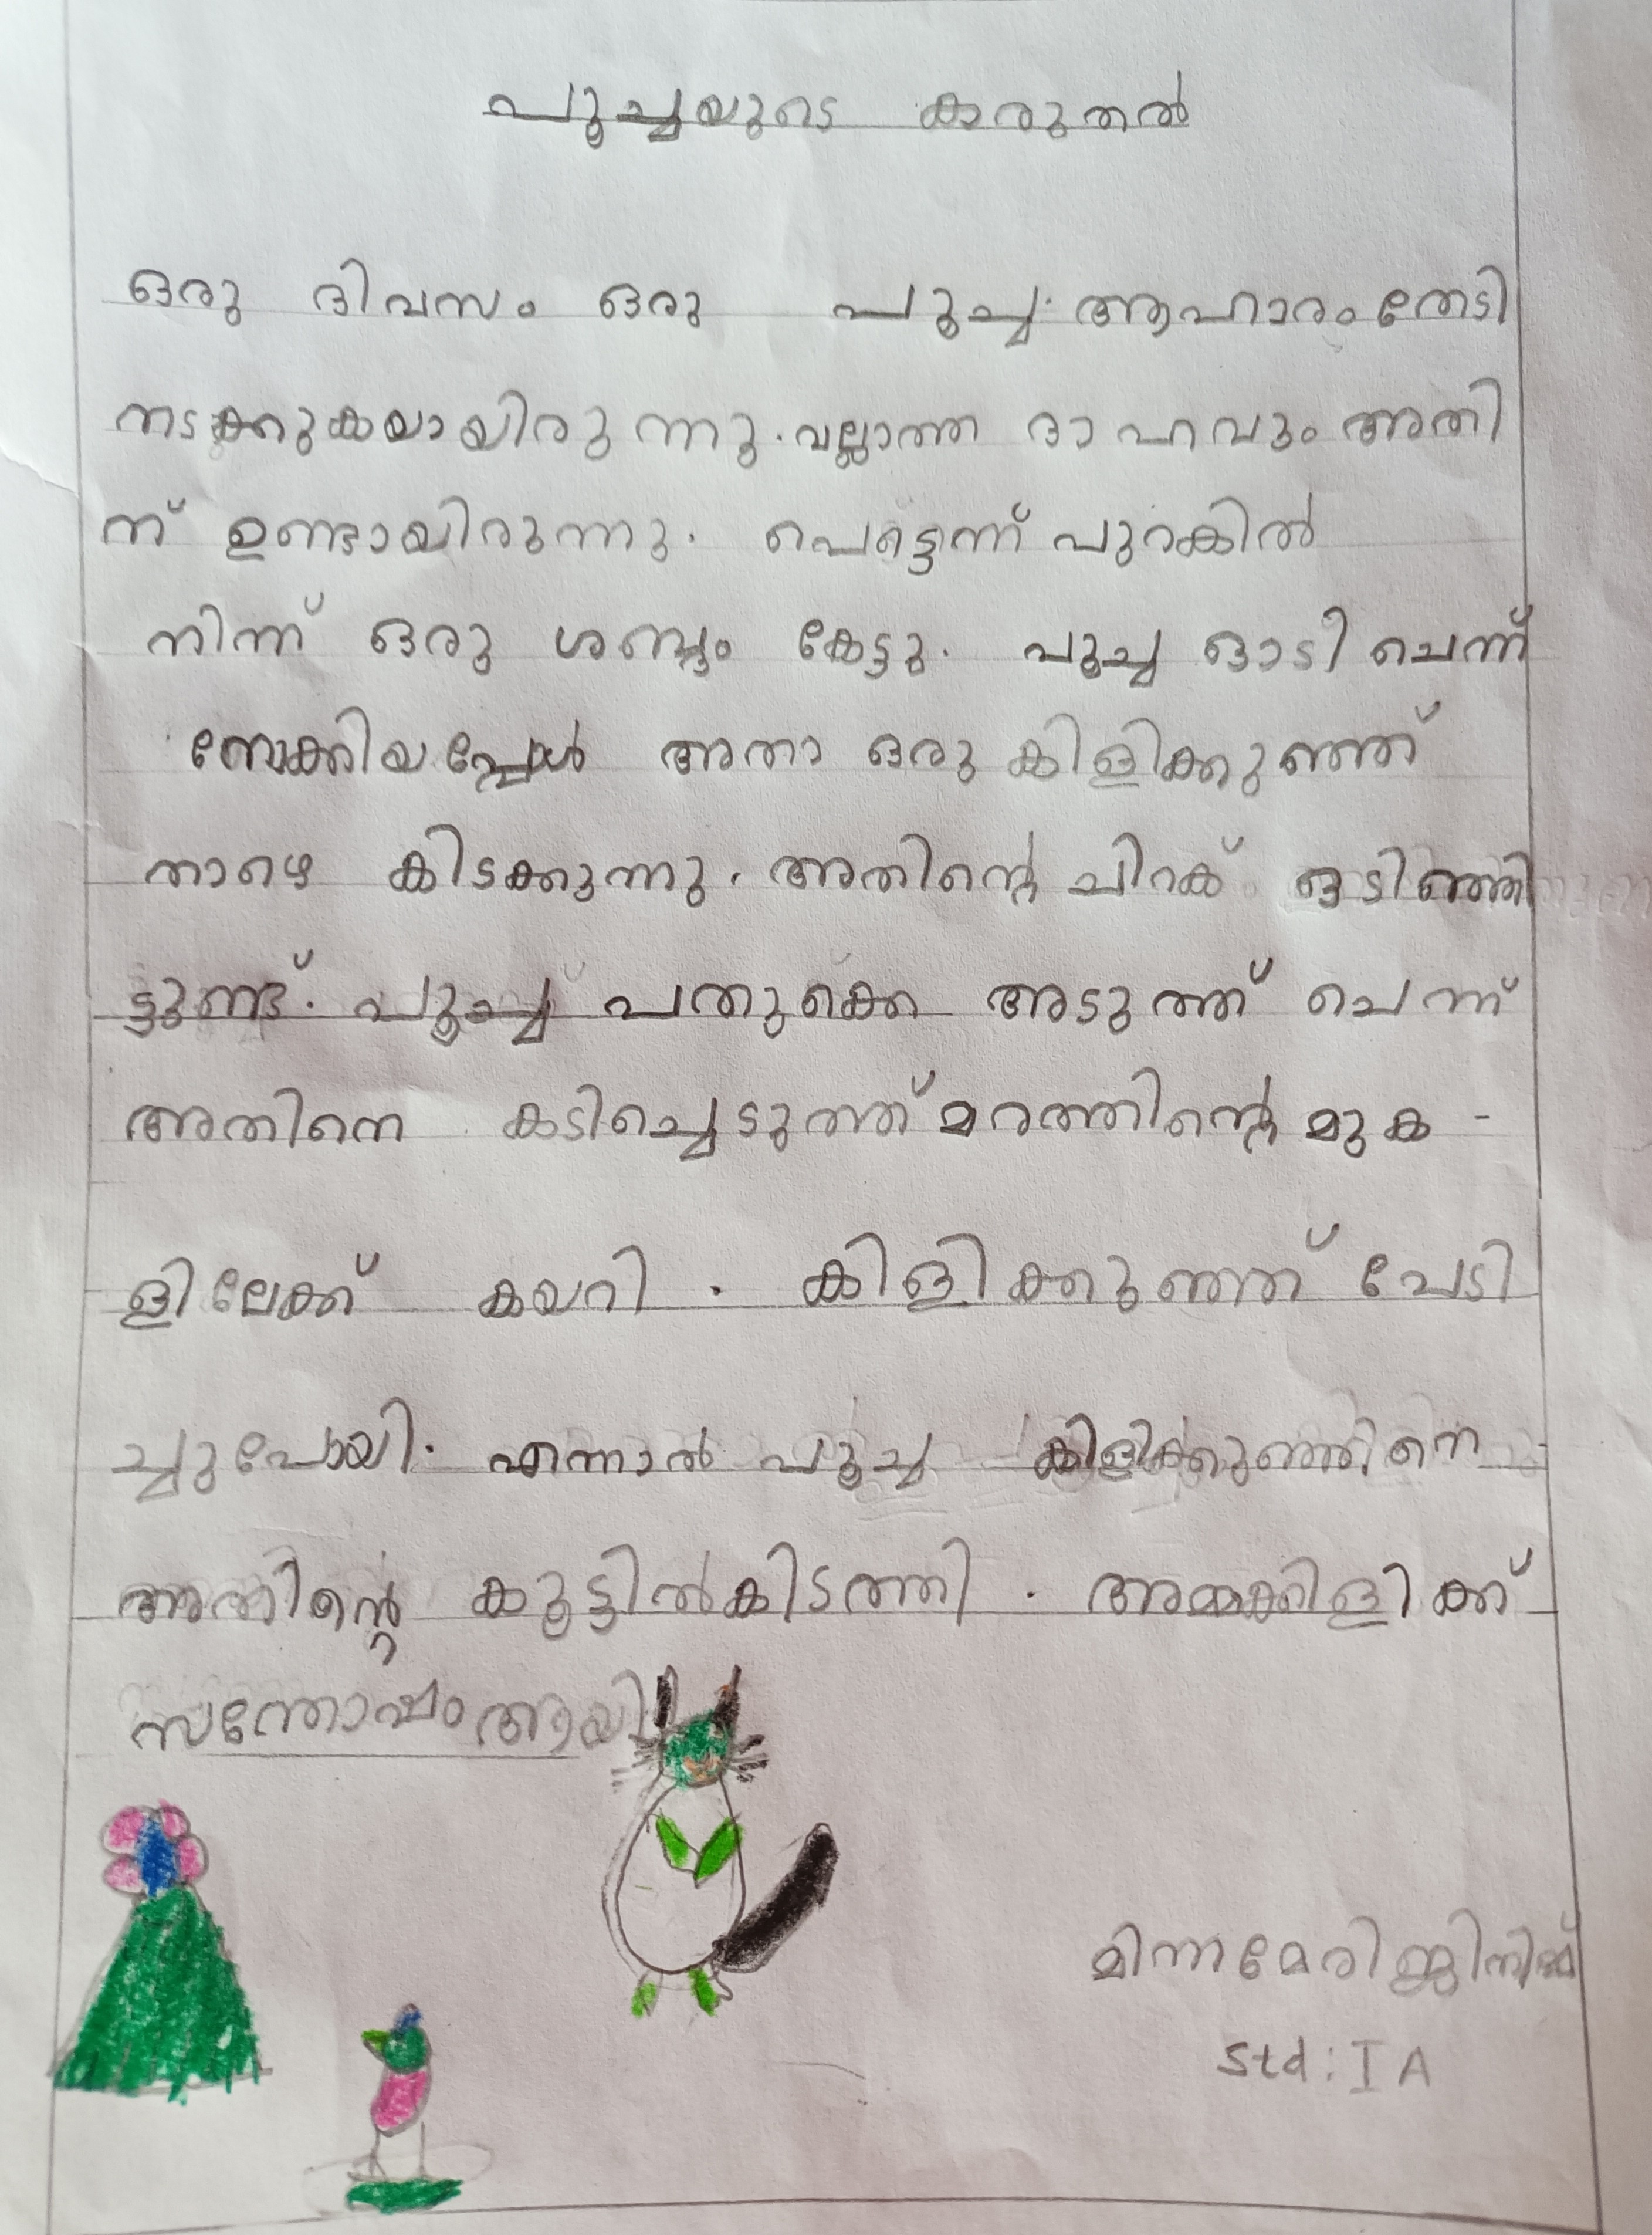 പൂച്ചയുടെ കാരുതൽ
ഒരു ദിവസം ഒരു പൂച്ച ആഹാരം തേടി
നടക്കുകയായിരുന്നു. വല്ലാത്ത ദാഹവും അതി
ന് ഉണ്ടായിരുന്നു. പെട്ടെന്ന് പുറകിൽ
നിന്ന് ഒരു ശബ്ദം കേട്ടു. പൂച്ച ഓടി ചെന്ന്
നോക്കിയപ്പോൾ അതാ ഒരു കിളിക്കുഞ്ഞ്
താഴെ കിടക്കുന്നു. അതിന്റെ ചിറക് ഒടിഞ്ഞി
ട്ടുണ്ട്. പൂച്ച പതുക്കെ അടുത്ത് ചെന്ന്
അതിനെ കടിച്ചെടുത്ത് മരത്തിന്റെ മുക -
ളിലേക്ക് കയറി . കിളിക്കുഞ്ഞ് പേടി
ച്ചുപോയി. എന്നാൽ പൂച്ച കിളിക്കുഞ്ഞിനെ
അതിന്റെ കൂട്ടിൽ കിടത്തി . അമ്മക്കിളിക്ക്
സന്തോഷം ആയി
മിന്ന മേരി
Std : I A